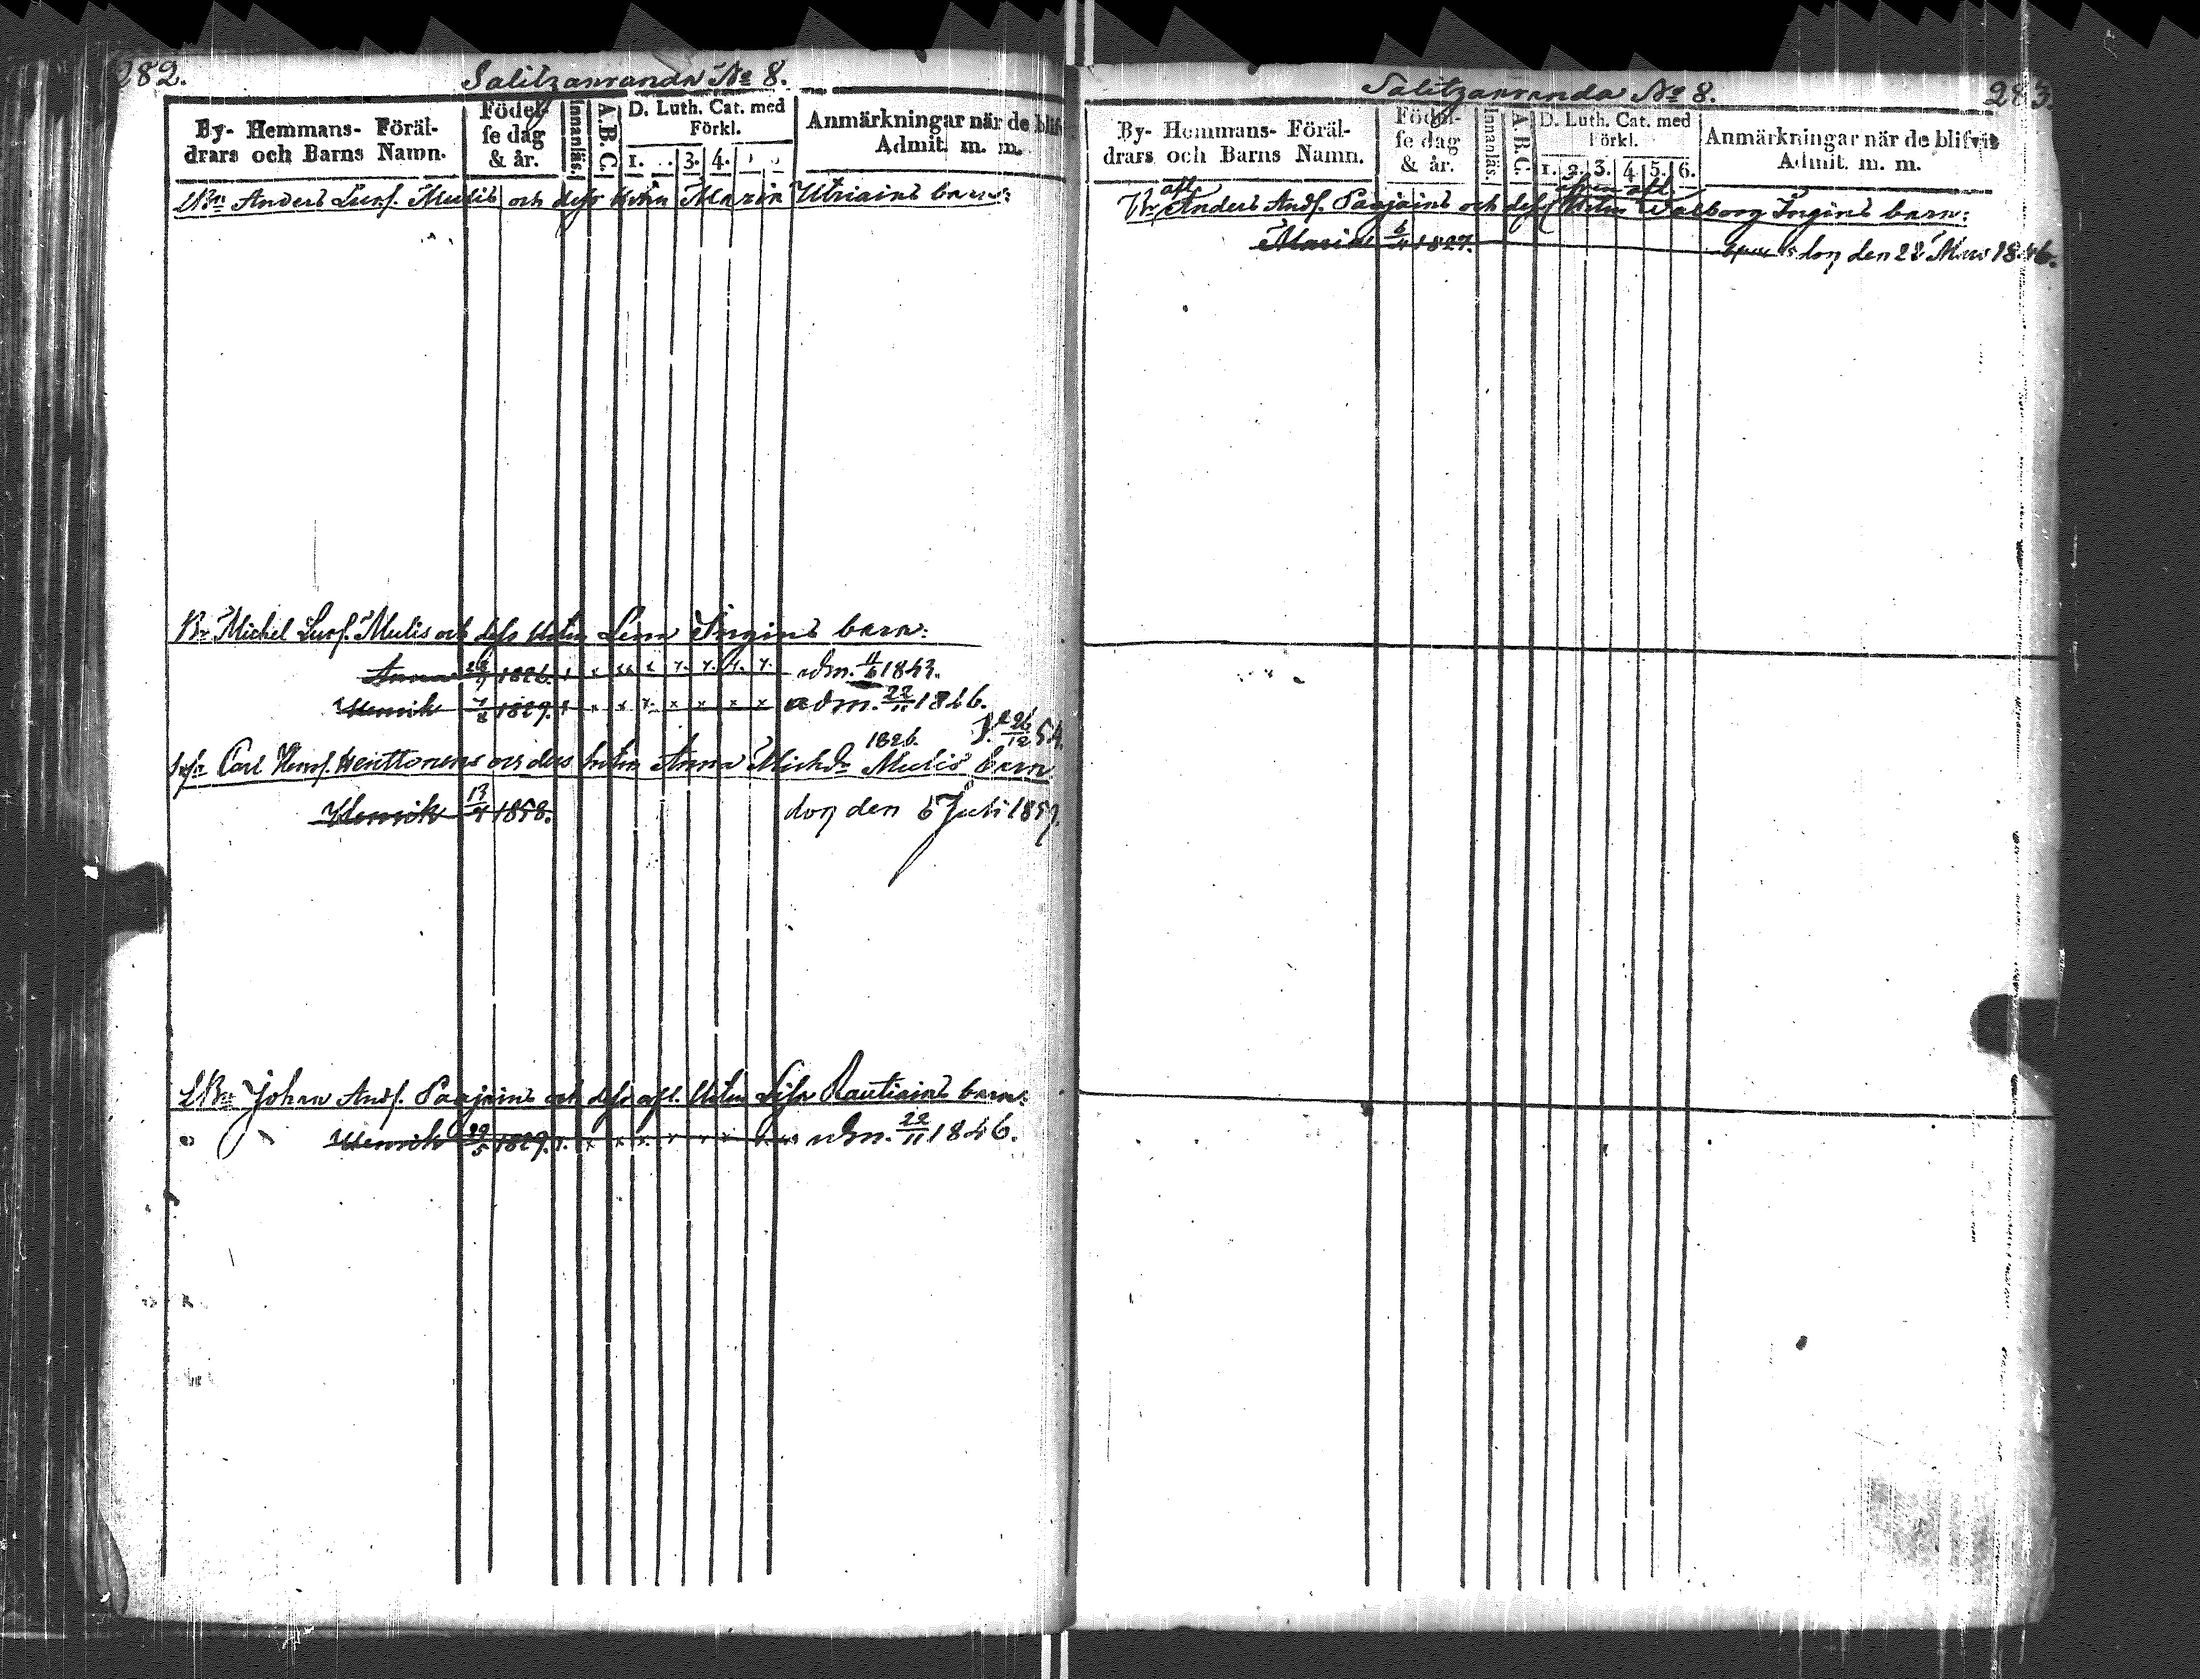 282.
Salitzanranda No 8.
By- Hemmans- Föräl-
drars och Barns Namn.
Födel-
se dag
& år.
Innanläs.
A.B.C.
D. Luth. Cat. med
Förkl.
1. 3. 4.
Anmärkningar när de blif
Admit. m. m.
Anders Lars. Mulis och dess Hstru Maria Utriains barn:
Br Michel Lars. Mulis och dess Hstru Lena Ingins barn:
Anna 1826. x x x x x x x adm. 1843.
Henrik 1829. x x x x x x x x adm. 22/11 1846.
1826. 26/12 54.
Carl Henr. Henttonens och dess hustru Anna Michdr Mulis barn
Henrik 13/4 1858. dog den 5 Juli 1859.
LBr Johan Ands. Paajains och dess afl. Hstru Lisa Rautiains barn:
Henrik 29/5 1829. x x x x x x x adm. 22/11 1846.
283.
Salitzanranda No 8.
By- Hemmans- Föräl-
drars och Barns Namn.
Födel-
se dag
& år.
Innanläs.
A.B.C.
D. Luth. Cat. med
Förkl.
1. 2. 3. 4. 5. 6.
Anmärkningar när de blifvit
Admit. m. m.
afl afl.
Br Anders Ands. Paajains och dess Hstru Walborg Ingins barn:
Maria 1827. dog den 22 Mars 1846.